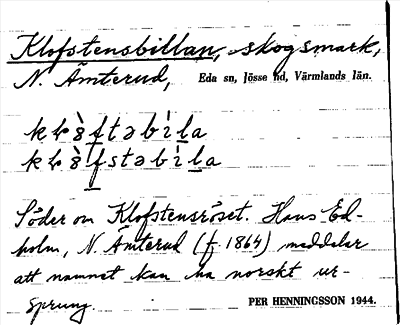 Klofstensbillan, skogsmark,
N. Ämterud, Eda sn, Jösse hd, Värmlands län.
Söder om Klofstensröset. Hans Ed-
holm, N. Ämterud (f. 1864) meddelar
att namnet kan ha norskt ur-
sprung. PER HENNINGSSON 1944.